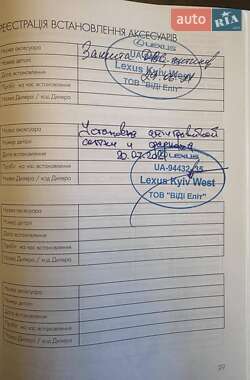 auto
RIA
.com
РЕЄСТРАЦІЯ ВСТАНОВЛЕННЯ АКСЕСУАРІВ
Назва аксесуара
Номер деталі
Дата встановлення
Пробіг на час встановлення
Назва Дилера / код Дилера
Защита ДВС
LEXUS
UA-
Lexus Kyiv West
ТОВ "ВІДІ Еліт"
Назва аксесуара
Номер деталі
Дата встановлення
Пробіг на час встановлення
Назва Дилера / код Дилера
Установка
сетки и
LEXUS
UA-94432/35
Lexus Kyiv West
ТОВ "ВІДІ Еліт"
Назва аксесуара
Номер деталі
Дата встановлення
Пробіг на час встановлення
Назва Дилера / код Дилера
Назва аксесуара
Номер деталі
Дата встановлення
Пробіг на час встановлення
Назва Дилера / код Дилера